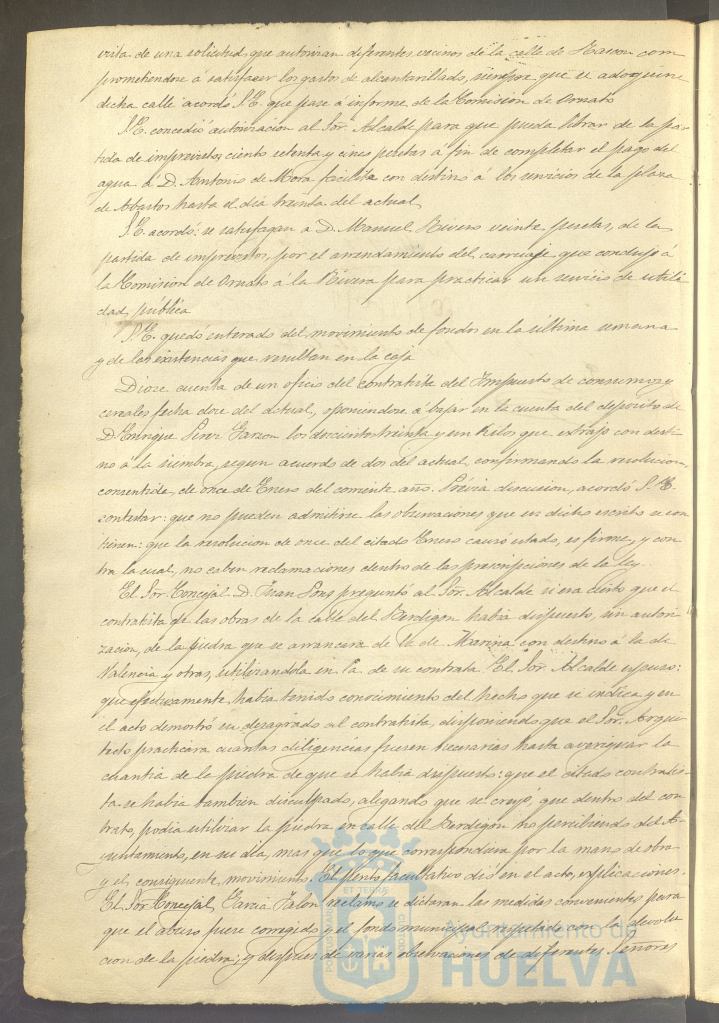 vista de una solicitud, que autorizan diferentes vecinos de la calle de Rascon com
prometiendose á satisfacer los gastos de alcantarillado, siempre que se adoquine
dicha calle acordó S.E. que pase á informe de la Comision de Ornato.
S.E. concedió autorizacion al Sor. Alcalde para que pueda librar de la par
tida de imprevistos ciento setenta y cinco pesetas á fin de completar el pago del
agua á D. Antonio de Mora facilita con destino á los servicios de la plaza
de Abastos hasta el dia treinta del actual.
S.E. acordó: se satisfagan á D. Manuel Rivero veinte pesetas, de la
partida de imprevistos, por el arrendamiento del carruaje que condujo á
la Comision de Ornato á la Rivera para practicar un servicio de utili
dad pública.
S.E. quedó enterado del movimiento de fondos en la ultima semana
y de las existencias que resultan en la caja.
Diose cuenta de un oficio del contratista del Impuesto de consumos y
cereales fecha doce del actual, oponiendose á bajar en la cuenta del deposito de
D. Enrique Perez Garzon los doscientos treinta y un kilos que extrajo con desti
no á la siembra, segun acuerdo de dos del actual, confirmando la resolucion,
consentida, de once de Enero del corriente año. Prévia discusion, acordó S.E.
contestar: que no pueden admitirse las observaciones que en dicho escrito se con
tienen: que la resolucion de once del citado Enero causó estado, es firme, y con
tra la cual, no caben reclamaciones dentro de las prescripciones de la ley.
El Sor. Concejal D. Juan Poas preguntó al Sor. Alcalde si era cierto que el
contratista de las obras de la calle del Berdigon habia dispuesto, sin autori
zacion, de la piedra que se arrancara de la de Marina con destino á la de
Valencia y otras, utilizandola en la de su contrata. El Sor. Alcalde repuso:
que efectivamente, habia tenido conocimiento del hecho que se indica y en
el acto demostró su desagrado al contratista, disponiendo que el Sor. Arqui
tecto practicara cuantas diligencias fuesen necesarias hasta averiguar la
cuantia de la piedra de que se habia dispuesto: que el citado contratis
ta se habia tambien disculpado, alegando que se creyó, que dentro del con
trato, podia utilizar la piedra en calle del Berdigon no percibiendo del A
yuntamiento, en su dia, mas que lo que correspondiera por la mano de obra
y el, consiguiente, movimiento. El perito facultativo dió en el acto, esplicaciones.
El Sor. Concejal Garcia Jalon reclamó se dictaran las medidas convenientes para
que el abuso fuere corregido y el fondo municipal respetado con la devolu
cion de la piedra; y despues de varias observaciones de diferentes Señores
ET TERRE
Ayuntamiento de
HUELVA